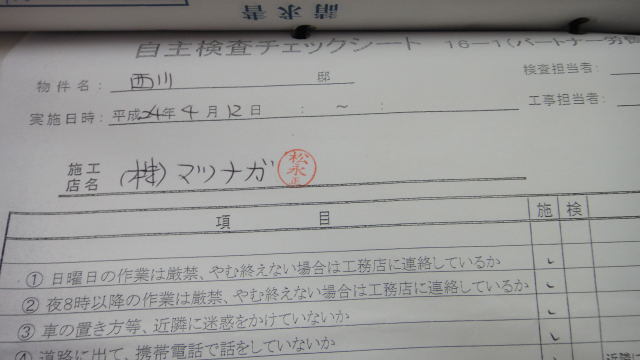 請求書
自主検査チェックシート 16-1(パートナー労務
物件名: 西川 邸
検査担当者:
実施日時: 平成24年4月12日 : ~ :
工事担当者:
施工店名 (株)マツナガ 松永
項 目 施 検
① 日曜日の作業は厳禁、やむ終えない場合は工務店に連絡しているか
② 夜8時以降の作業は厳禁、やむ終えない場合は工務店に連絡しているか
③ 車の置き方等、近隣に迷惑をかけていないか
④ 道路に出て、携帯電話で話をしていないか